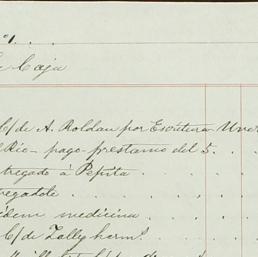 Caja
C/de A. Roldan por Escritura
Rio - pago prestamo del 5
tregado à Pepita
tregadole
idem medicina
C/de Zolly herm.s